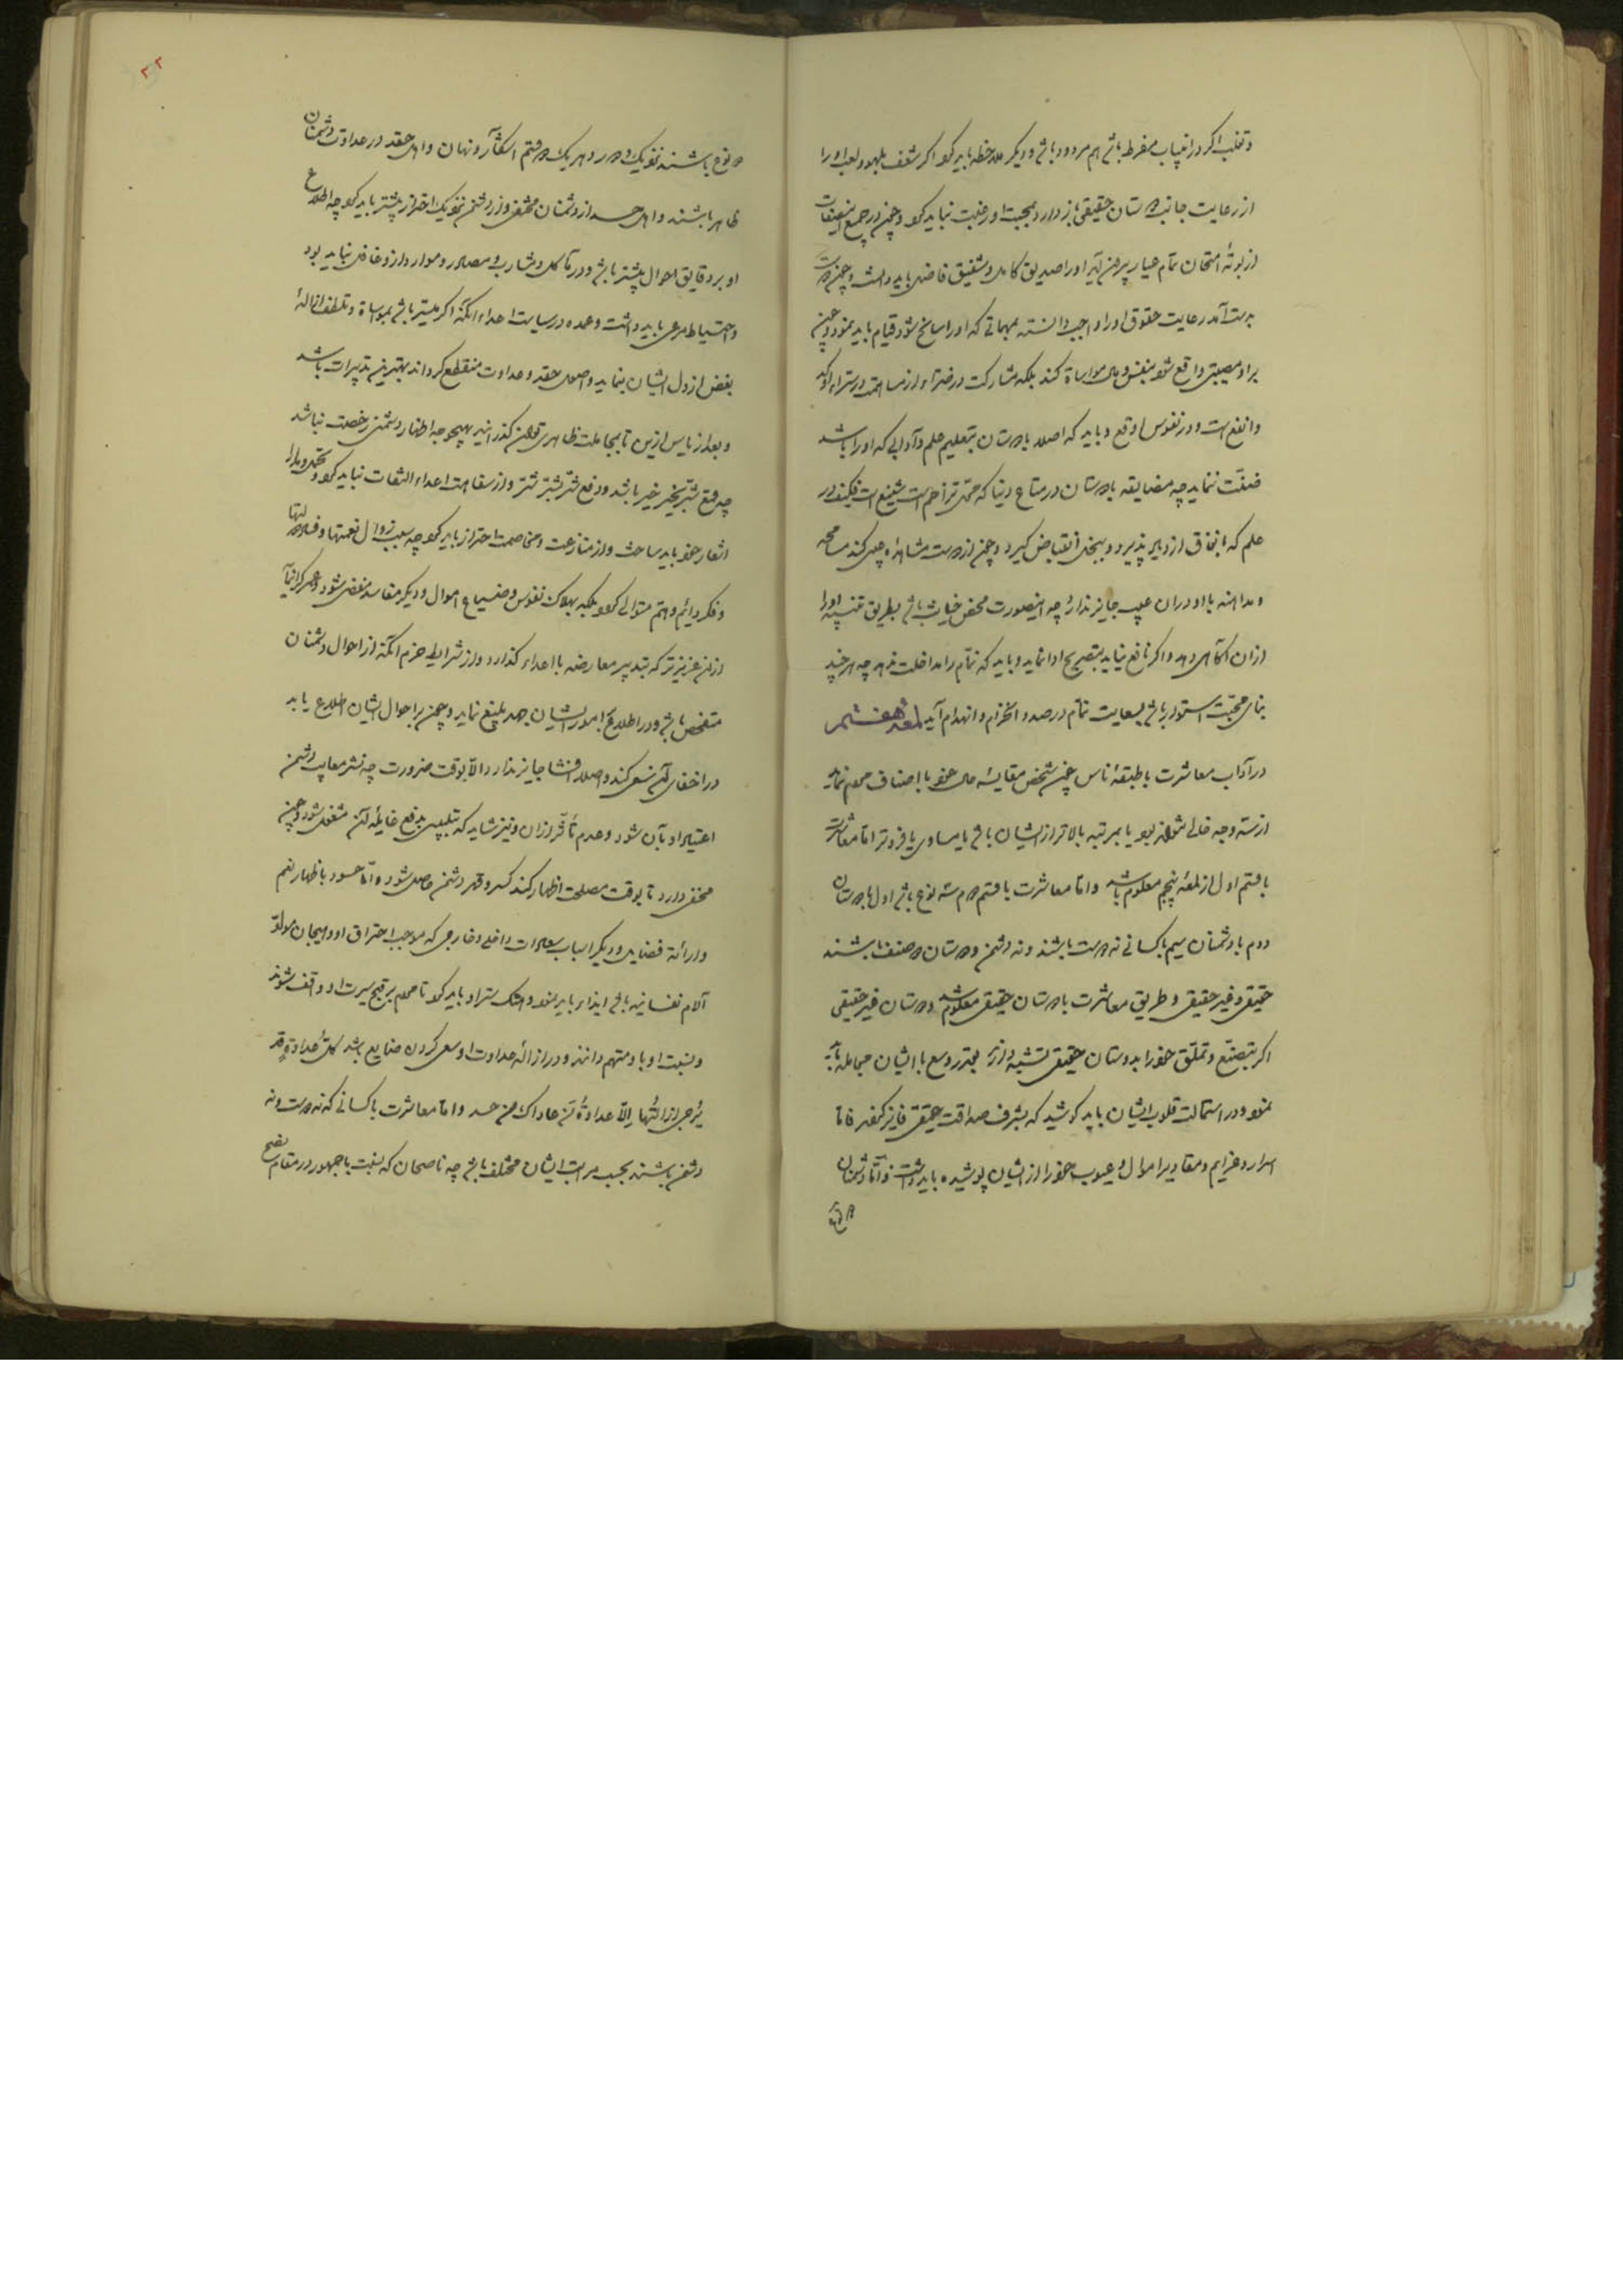 وتغلب اگر در انیباب مفرط باشد هم مردود باشد و دیگر ملاحظه باید کرد اگر شغف بلهو و لعب او را
از رعایت جانب دوستان حقیقی باز دارد بمحبت او رغبت نباید کرد و چون در جمیع این صفات
از بوتهٔ امتحان تمام عیار بیرون آید او را صدیق کامل و شفیق فاضل باید دانست و چون دوست
بدست آمد رعایت حقوق او را واجب دانسته بمهماتی که او را سانح شود قیام باید نمود و چون
برا و مصیبتی واقع شود بنفس و مال مواساة کند بلکه مشارکت در ضراء از مساهمت در سراء اوکد
وانفع است و در نفوس اوقع و باید که اصلا با دوستان بتعلیم علم و آدابی که او را باشد
ضنّت ننماید چه مضایقه با دوستان در متاع دنیا که محل تزاحم است شنیع است فکیف در
علم که بانفاق ازدیاد پذیرد و ببخل انقباض گیرد و چون از دوست مشاهده عیبی کند مسامحه
ومداهنه با او در ان عیب جایز ندارد چه اینصورت محض خیانت باشد بطریق تنبیه او را
ازان آگاهی دهد و اگر نافع نیاید بتصریح ادا نماید و باید که نمام را مداخلت ندهد چه هر چند
بنای محبت استوار باشد بسعایت نمام در صدد انخرام و انهدام آید لمعه هفتم
در آداب معاشرت با طبقهٔ ناس چون شخص مقایسهٔ حال خود با اصناف مردم نماید
از سه وجه خالی نتواند بود یا بمرتبه بالاتر از ایشان باشد یا مساوی یا فروتر اما معاشرت
با قسم اول از لمعهٔ پنجم معلوم باشد و اما معاشرت با قسم دوم سه نوع باشد اول با دوستان
دوم با دشمنان سیم با کسانی نه دوست باشند و نه دشمن و دوستان دو صنف باشند
حقیقی و غیر حقیقی و طریق معاشرت با دوستان حقیقی معلوم شد و دوستان غیر حقیقی
اگر بتصنّع و تملّق خود را بدوستان حقیقی تشبیه دارند بقدر وسع با ایشان مجامله باید
نمود و در استمالت قلوب ایشان باید کوشید که بشرف صداقت حقیقی فایز گردند فاما
اسرار و عزایم و مقادیر اموال و عیوب خود را از ایشان پوشیده باید داشت و اما دشمنان
دو نوع
دو نوع باشند نزدیک و دور و هر یک دو قسم آشکار و نهان و اهل حقد در عداوت دشمنان
ظاهر باشند و اهل حسد از دشمنان مخفی و از دشمن نزدیک احتراز بیشتر باید کرد چه اطلاع
او بر دقایق احوال بیشتر باشد و در مآکل و مشارب و مصادر و موارد از و غافل نباید بود
واحتیاط مرعی باید داشت و عمده در سیاست اعداء آنکه اگر میسّر باشد بمواساة و تلطف ازالهٔ
بغض از دل ایشان بنماید و اصول حقد و عداوت منقطع گرداند بهترین تدبیرات باشد
و بعد از یاس ازین تا بمجاملت ظاهری توان گذرانید بهیچ وجه اظهار دشمنی رخصت نباشد
چه قمع شرّ بخیر خیر باشد و دفع شرّ بشر شر و از سفاهت اعداء التفات نباید کرد و تحمل و مدارا
شعار خود باید ساخت و از منازعت و مخاصمت احتراز باید کرد چه سبب زوال نعمتها و
وفکر دائم و همّ متوالی گردد بلکه بهلاک نفوس و ضیاع اموال و دیگر مفاسد مفضی شود و عمر گرانمایه
ازان عزیزتر که بتدبیر معارضه با اعداء گذارد و از شرایط حزم آنکه از احوال دشمنان
متفحص باشد و در اطلاع بر امور ایشان جهد بلیغ نماید و چون بر احوال ایشان اطلاع یابد
در اخفای آن سعی کند و اصلا افشا جایز ندارد الّا بوقت ضرورت چه نشر معایب دشمن
اعتیاد او بآن شود و عدم تأثّر ازان و نیز شاید که بتلبیس بدفع غایلهٔ آن مشغول شود و چون
مخفی دارد تا بوقت مصلحت اظهار کند کسر و قهر دشمن حاصل شود و امّا حسود باظهار نعم
وارائهٔ فضایل و دیگر اسباب سعادات داخلی و خارجی که موجب احتراق او و هیجان مولد
آلام نفسانیه باشد ایذاء باید نمود و هتک ستر او باید کرد تا مردم بر قبح سیرت او واقف شوند
و نسبت او باو متهم دانند و در ازالهٔ عداوت او سعی کردن ضایع باشد کلّ عداوةٍ قد
یُرجی ازالتها الّا عداوةُ مَن عاداک من حسد و اما معاشرت با کسانی که نه دوست و نه
دشمن باشند بحسب مراتب ایشان مختلف باشد چه ناصحان که بنسبت با جمهور در مقام نصح